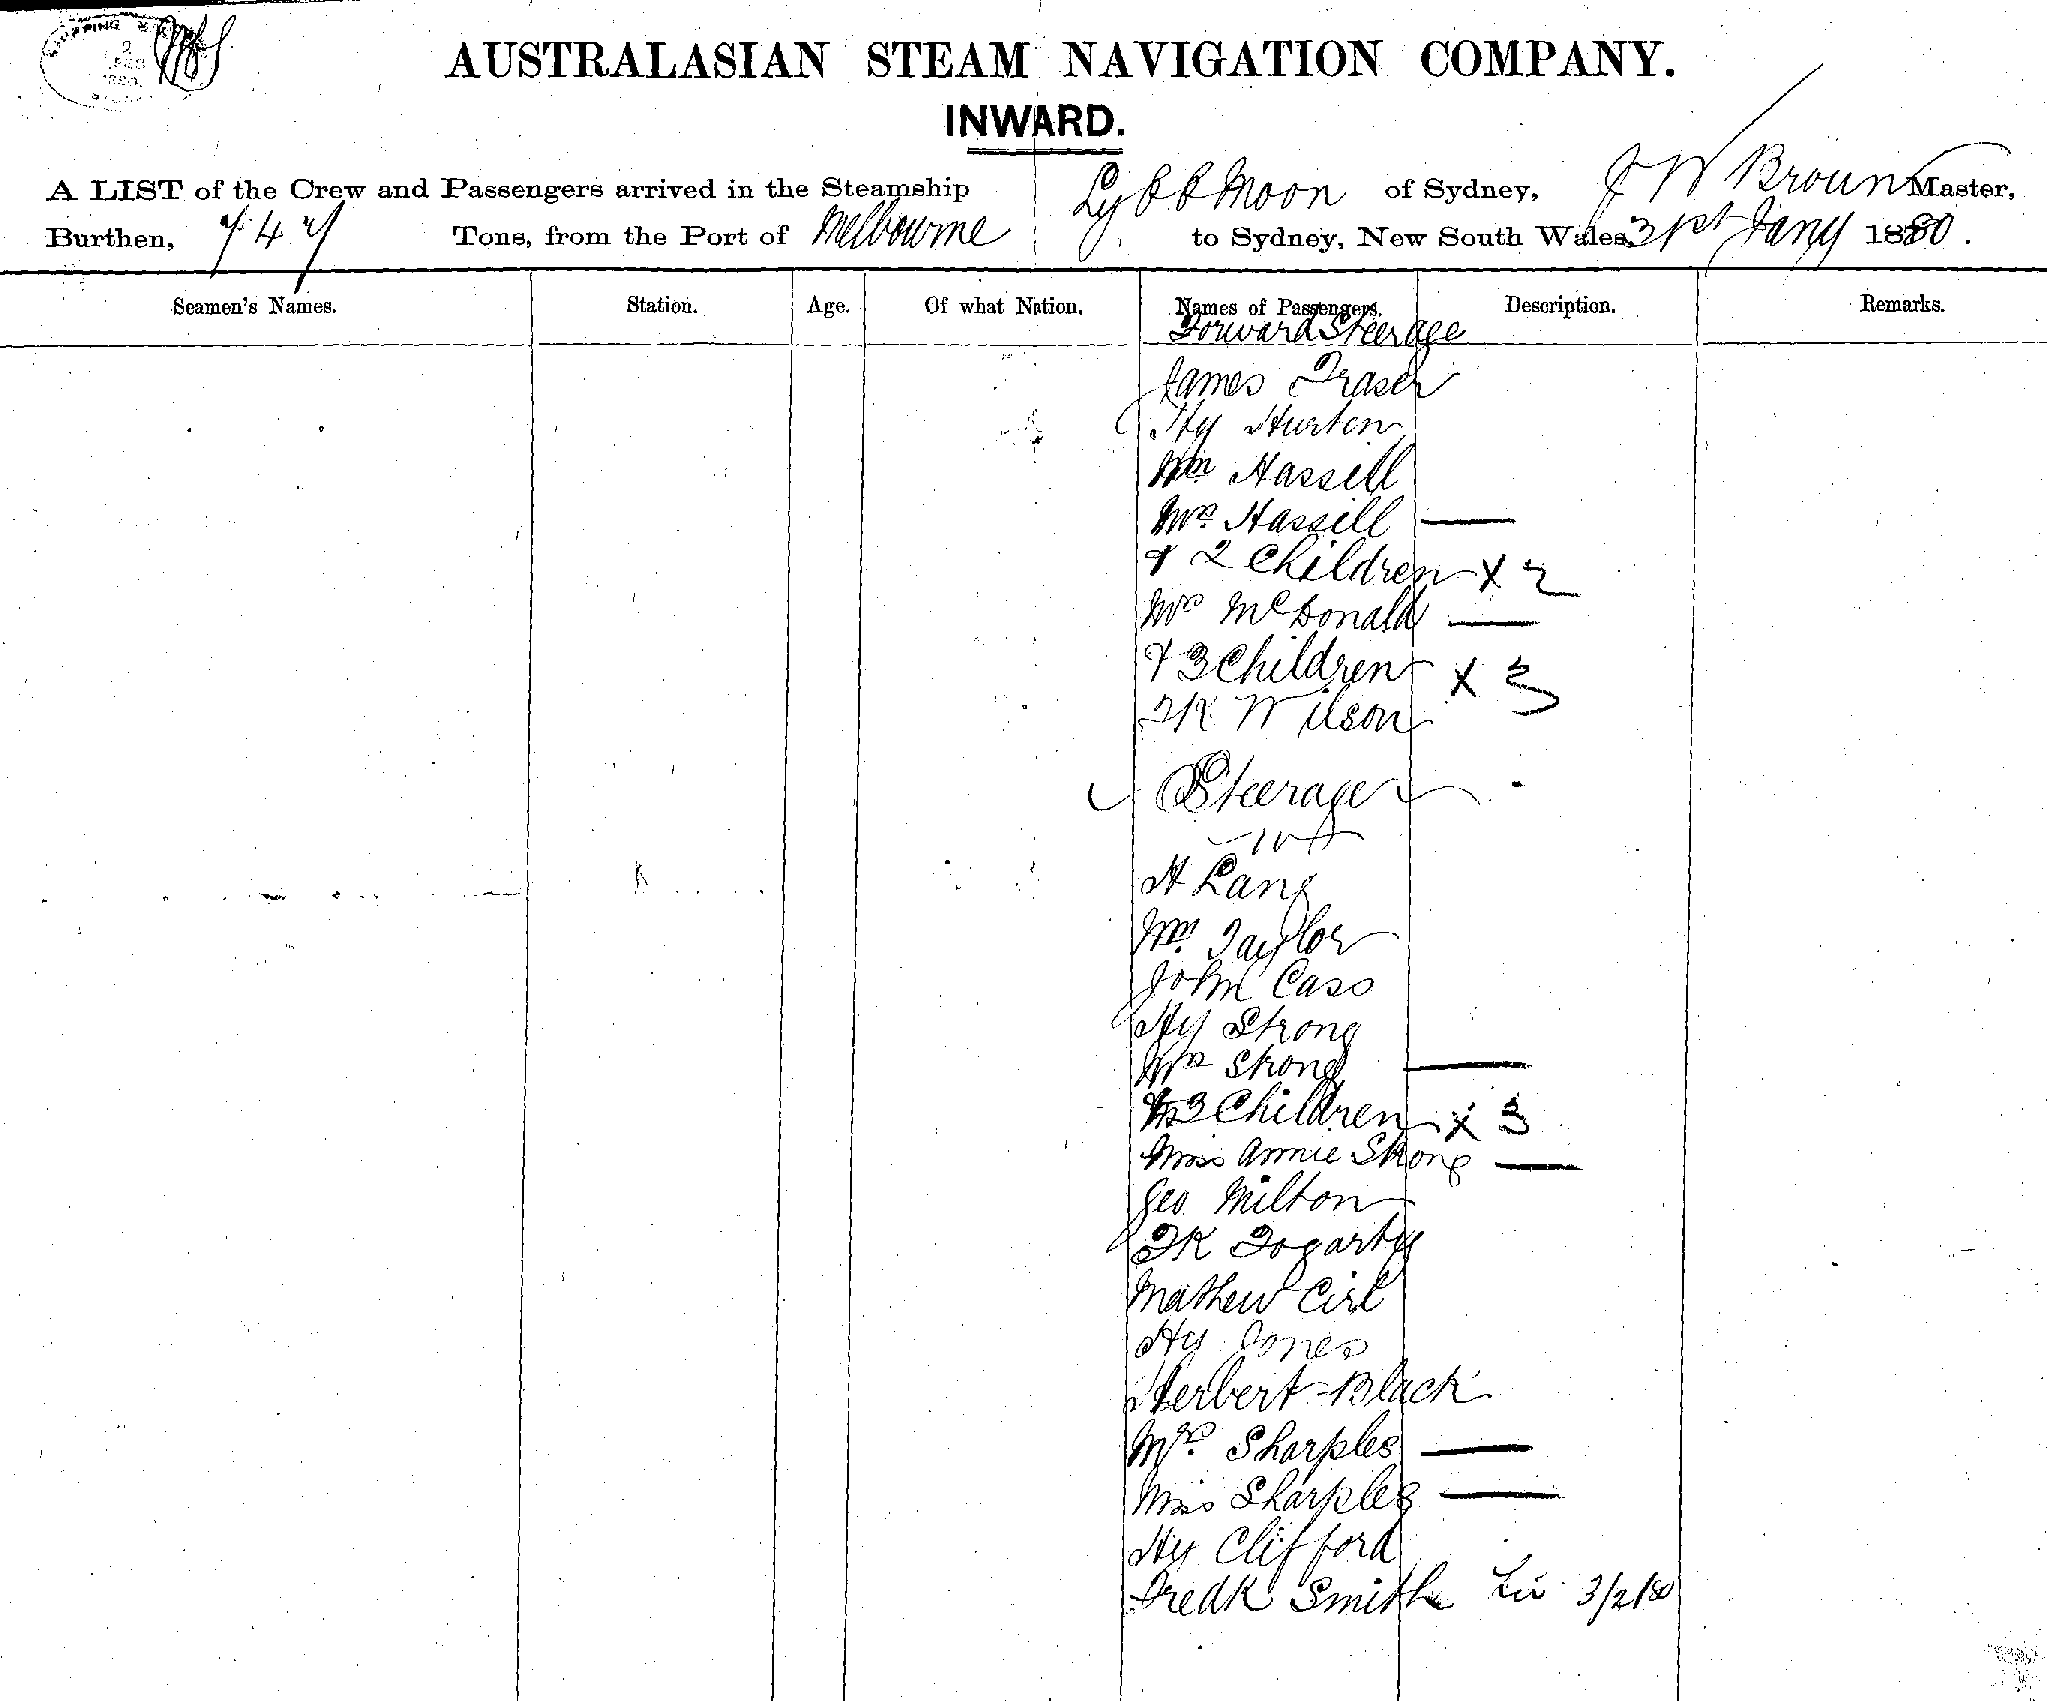 SHIPPING
2
1880
AUSTRALASIAN STEAM NAVIGATION COMPANY.
INWARD.
A LIST of the Crew and Passengers arrived in the Steamship Ly EE Moon of Sydney, J W Broun Master,
Burthen, 747 Tons, from the Port of Melbourne to Sydney, New South Wales, 31st Jany 1880.
Seamen's Names. Station. Age. Of what Nation. Names of Passengers. Description. Remarks.
Forward Steerage
James Fraser
Hy Hurton
Wm Hassell
Mrs Hassell
& 2 Children X 2
Mrs McDonald
& 3 Children X 3
FK Wilson
Steerage
H Lang
Wm Taylor
John Cass
Hy Strong
Mrs Strong
& 3 Children X 3
Miss Annie Strong
Geo Milton
FK Fogarty
Mathew Cirl
Hy Jones
Herbert Black
Mrs Sharples
Miss Sharples
Hy Clifford
Fredk Smith 3/2/80